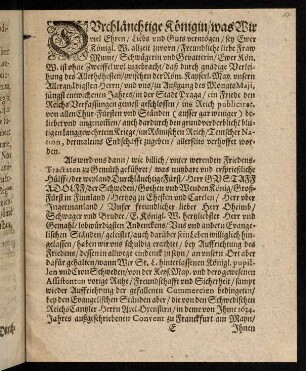 DVrchläuchtige Königin / was Wir
viel Ehren / Liebs und Guts vermögen / sey Ewer
Königl. W. allzeit zuvorn / Freundliche liebe Fraw
Muhm / Schwägerin und Gevatterin / Ewr Kön.
W. ist ohne Zweiffel wol angebracht / daß durch gnädige Verlei-
hung des Allerhöhesten / zwischen der Röm. Käyserl. May. unserm
Allergnädigsten Herrn / und uns / im Außgang des Monats Maji,
jüngst einverichteten Jahres / in der Stadt Praga / ein Friede den
Reichs Verfassungen gemeß geschlossen / ins Reich publiciret,
von allen Chur Fürsten und Ständen (ausser gar weniger) be-
liebet und angenommen / auch dardurch den grundverderblichẽ blu-
tigen langgewehretem Kriege / im Römischen Reich / Teutscher Na-
tion, dermaleins Endschafft zugeben / allerseits verhoffet wor-
den.
Als wird uns dann / wie billich / unter werenden Friedens-
Tractaten zu Gemüth geführet / was nutzbare und ersprießliche
Hülffe / der weyland Durchläuchtigste Fürst / Herr GUSTAFF
ADOLFF / der Schweden / Gothen und Wenden König / Groß-
Fürst in Finnland / Hertzog in Ehesten und Carelen / Herr über
Ingermanland / Unser freundlicher lieber Herr Oheimb /
Schwager und Bruder / E. Königl. W. hertzliebster Herr und
Gemahl / lobwürdigsten Andenckens / Uns und andern Evange-
lischen Ständen / geleistet / auch darüber sein Leben williglich hin-
gelassen / haben wir uns schuldig erachtet / bey Auffrichtung des
Friedens / dessen in allwege eindenck zu seyn / an unserm Ort aber
dafür gehalten / wann Wir Sr. L. hinterlassenen Königl. pupil-
len und Cron Schweden / von der Keys. May. und dero gewesenen
Assistenten vorige Ruhe / Freundschafft und Sicherheit / sampt
wieder Auffrichtung der gefallenen Commercien bedingeten /
bey den Evangelischen Ständen aber / die von den Schwedischen
Reichs Cantzler Herrn Axel Oxenstirn / in deme von Jhme 1634.
Jahres außgeschriebenen Convent zu Franckfurt am Mayn /
E
Ihnen